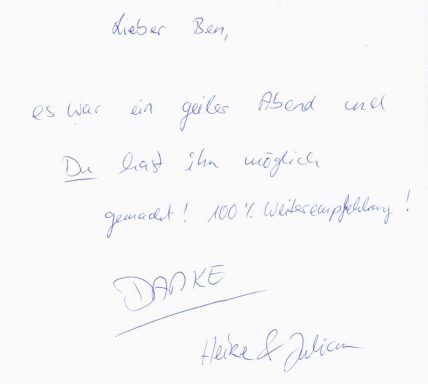 Lieber Ben,
es war ein geiler Abend und
Du hast ihn möglich
gemacht! 100% Weiterempfehlung!
DANKE
Heike & Julian